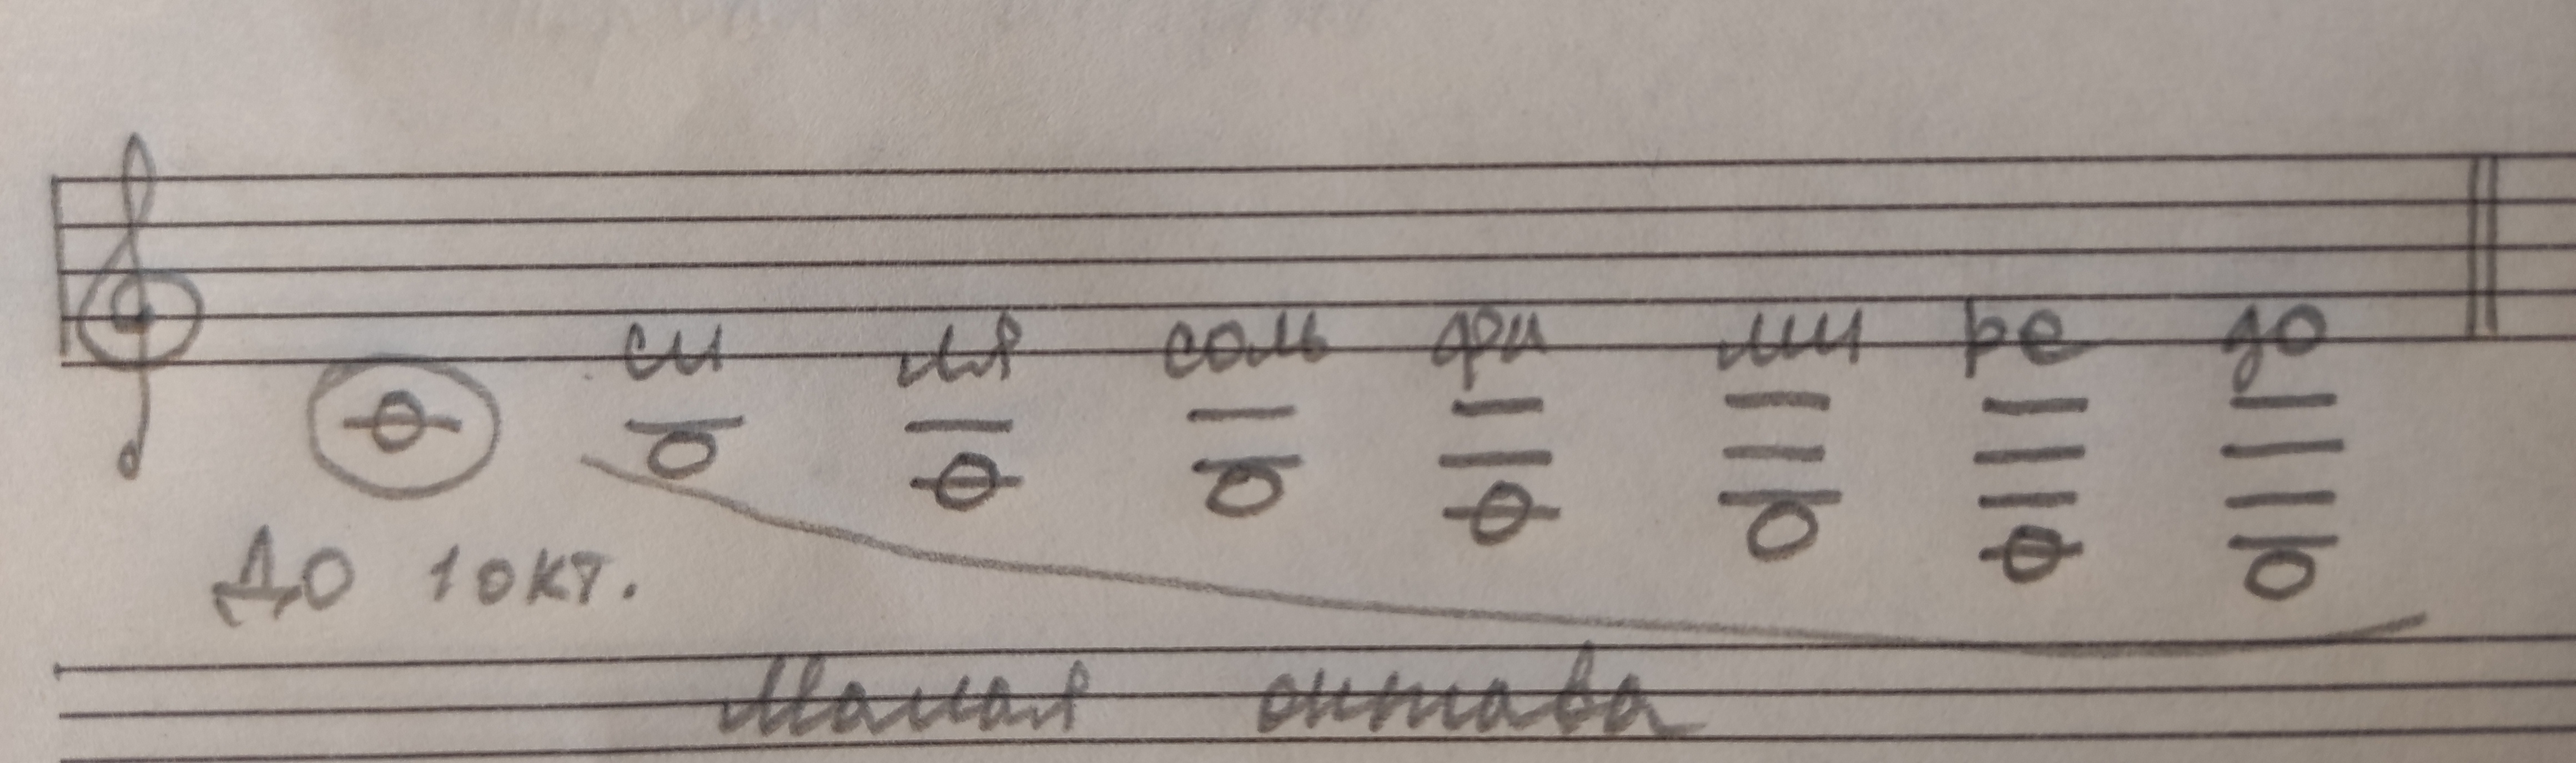 си ля соль фа ми ре до
До 1 окт.
Малая октава